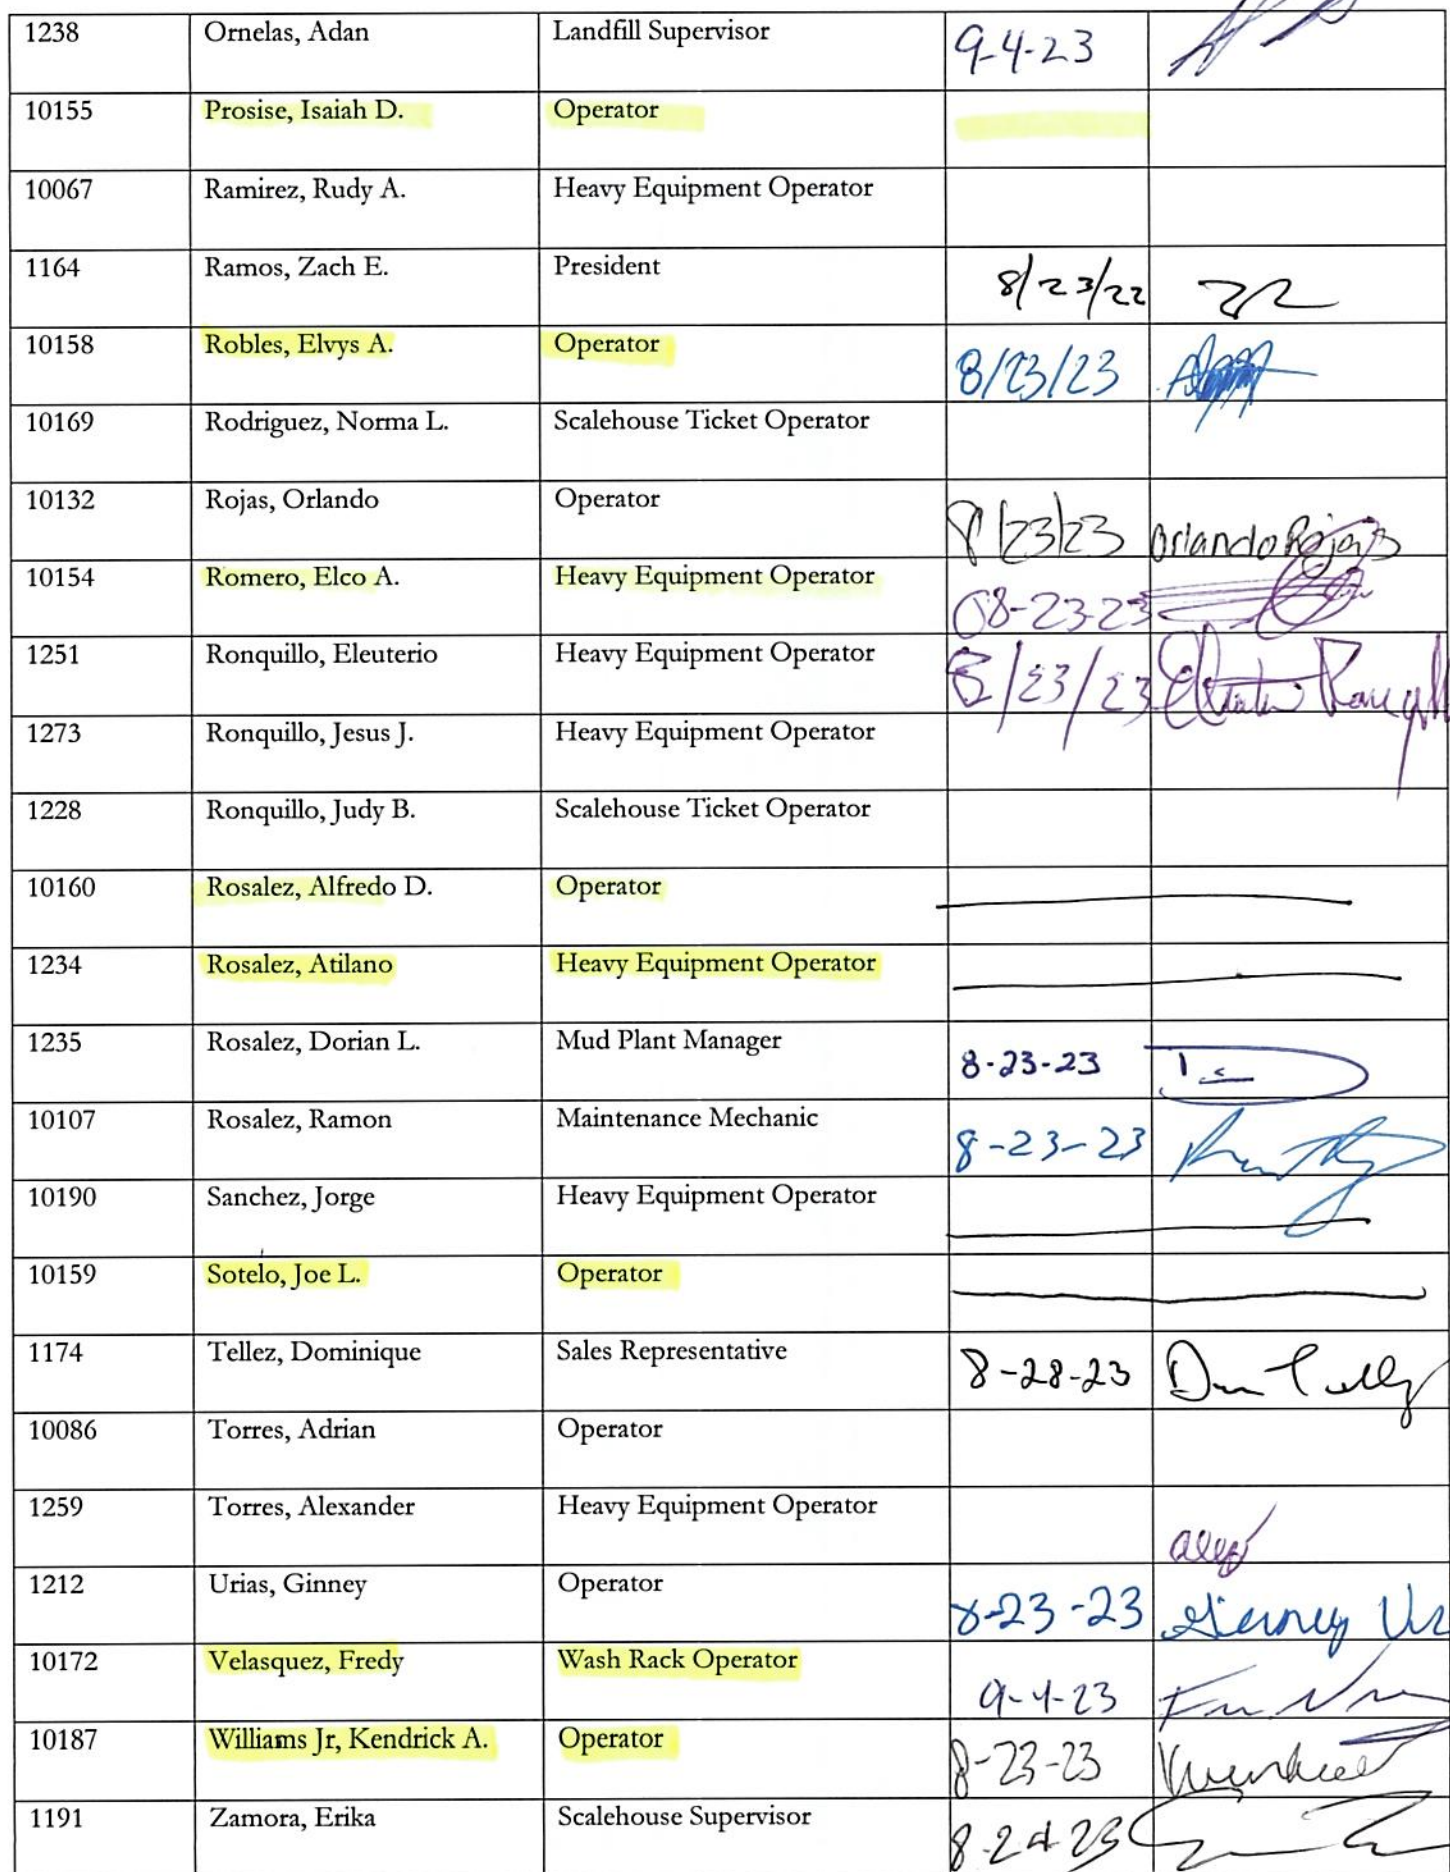 1238 Ornelas, Adan Landfill Supervisor 9-4-23
10155 Prosise, Isaiah D. Operator
10067 Ramirez, Rudy A. Heavy Equipment Operator
1164 Ramos, Zach E. President 8/23/22
10158 Robles, Elvys A. Operator 8/23/23
10169 Rodriguez, Norma L. Scalehouse Ticket Operator
10132 Rojas, Orlando Operator 8/23/23 Orlando Rojas
10154 Romero, Elco A. Heavy Equipment Operator 08-23-23
1251 Ronquillo, Eleuterio Heavy Equipment Operator 8/23/23
1273 Ronquillo, Jesus J. Heavy Equipment Operator
1228 Ronquillo, Judy B. Scalehouse Ticket Operator
10160 Rosalez, Alfredo D. Operator
1234 Rosalez, Atilano Heavy Equipment Operator
1235 Rosalez, Dorian L. Mud Plant Manager 8-23-23
10107 Rosalez, Ramon Maintenance Mechanic 8-23-23
10190 Sanchez, Jorge Heavy Equipment Operator
10159 Sotelo, Joe L. Operator
1174 Tellez, Dominique Sales Representative 8-28-23
10086 Torres, Adrian Operator
1259 Torres, Alexander Heavy Equipment Operator
1212 Urias, Ginney Operator 8-23-23
10172 Velasquez, Fredy Wash Rack Operator 9-4-23
10187 Williams Jr, Kendrick A. Operator 8-23-23
1191 Zamora, Erika Scalehouse Supervisor 8-24-23